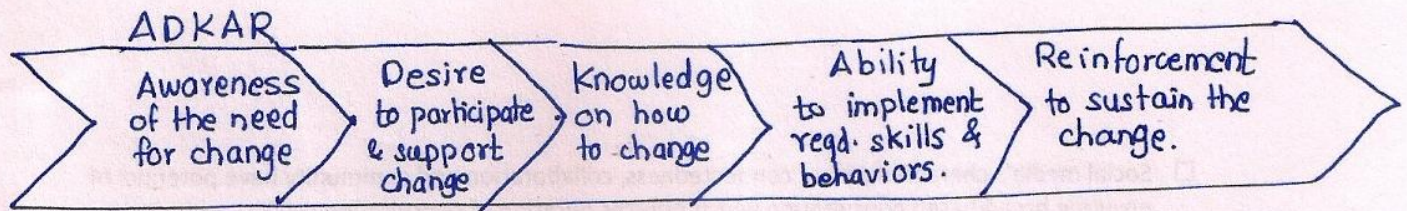 ADKAR
Awareness
of the need
for change
Desire
to participate
& support
change
Knowledge
on how
to change
Ability
to implement
reqd. skills &
behaviors.
Reinforcement
to sustain the
change.